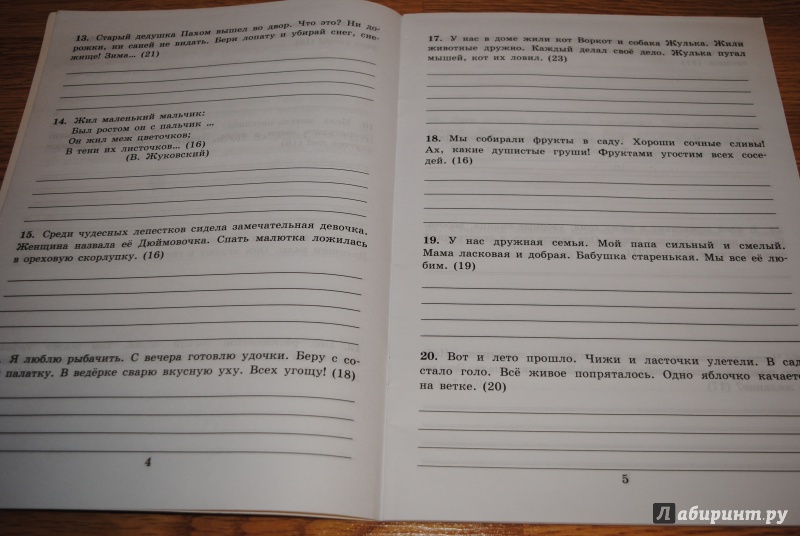 13. Старый дедушка Пахом вышел во двор. Что это? Ни до-
рожки, ни саней не видать. Бери лопату и убирай снег, сне-
жище! Зима... (21)
14. Жил маленький мальчик:
Был ростом он с пальчик ...
Он жил меж цветочков;
В тени их листочков... (16)
(В. Жуковский)
15. Среди чудесных лепестков сидела замечательная девочка.
Женщина назвала её Дюймовочка. Спать малютка ложилась
в ореховую скорлупку. (16)
Я люблю рыбачить. С вечера готовлю удочки. Беру с со-
палатку. В ведёрке сварю вкусную уху. Всех угощу! (18)
4
17. У нас в доме жили кот Воркот и собака Жулька. Жили
животные дружно. Каждый делал своё дело. Жулька пугал
мышей, кот их ловил. (23)
18. Мы собирали фрукты в саду. Хороши сочные сливы!
Ах, какие душистые груши! Фруктами угостим всех сосе-
дей. (16)
19. У нас дружная семья. Мой папа сильный и смелый.
Мама ласковая и добрая. Бабушка старенькая. Мы все её лю-
бим. (19)
20. Вот и лето прошло. Чижи и ласточки улетели. В сад
стало голо. Всё живое попряталось. Одно яблочко качает
на ветке. (20)
5
Лабиринт.ру